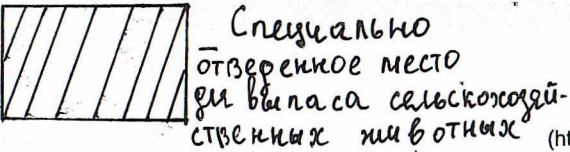 Специально
отведенное место
для выпаса сельскохозяй-
ственных животных (ht